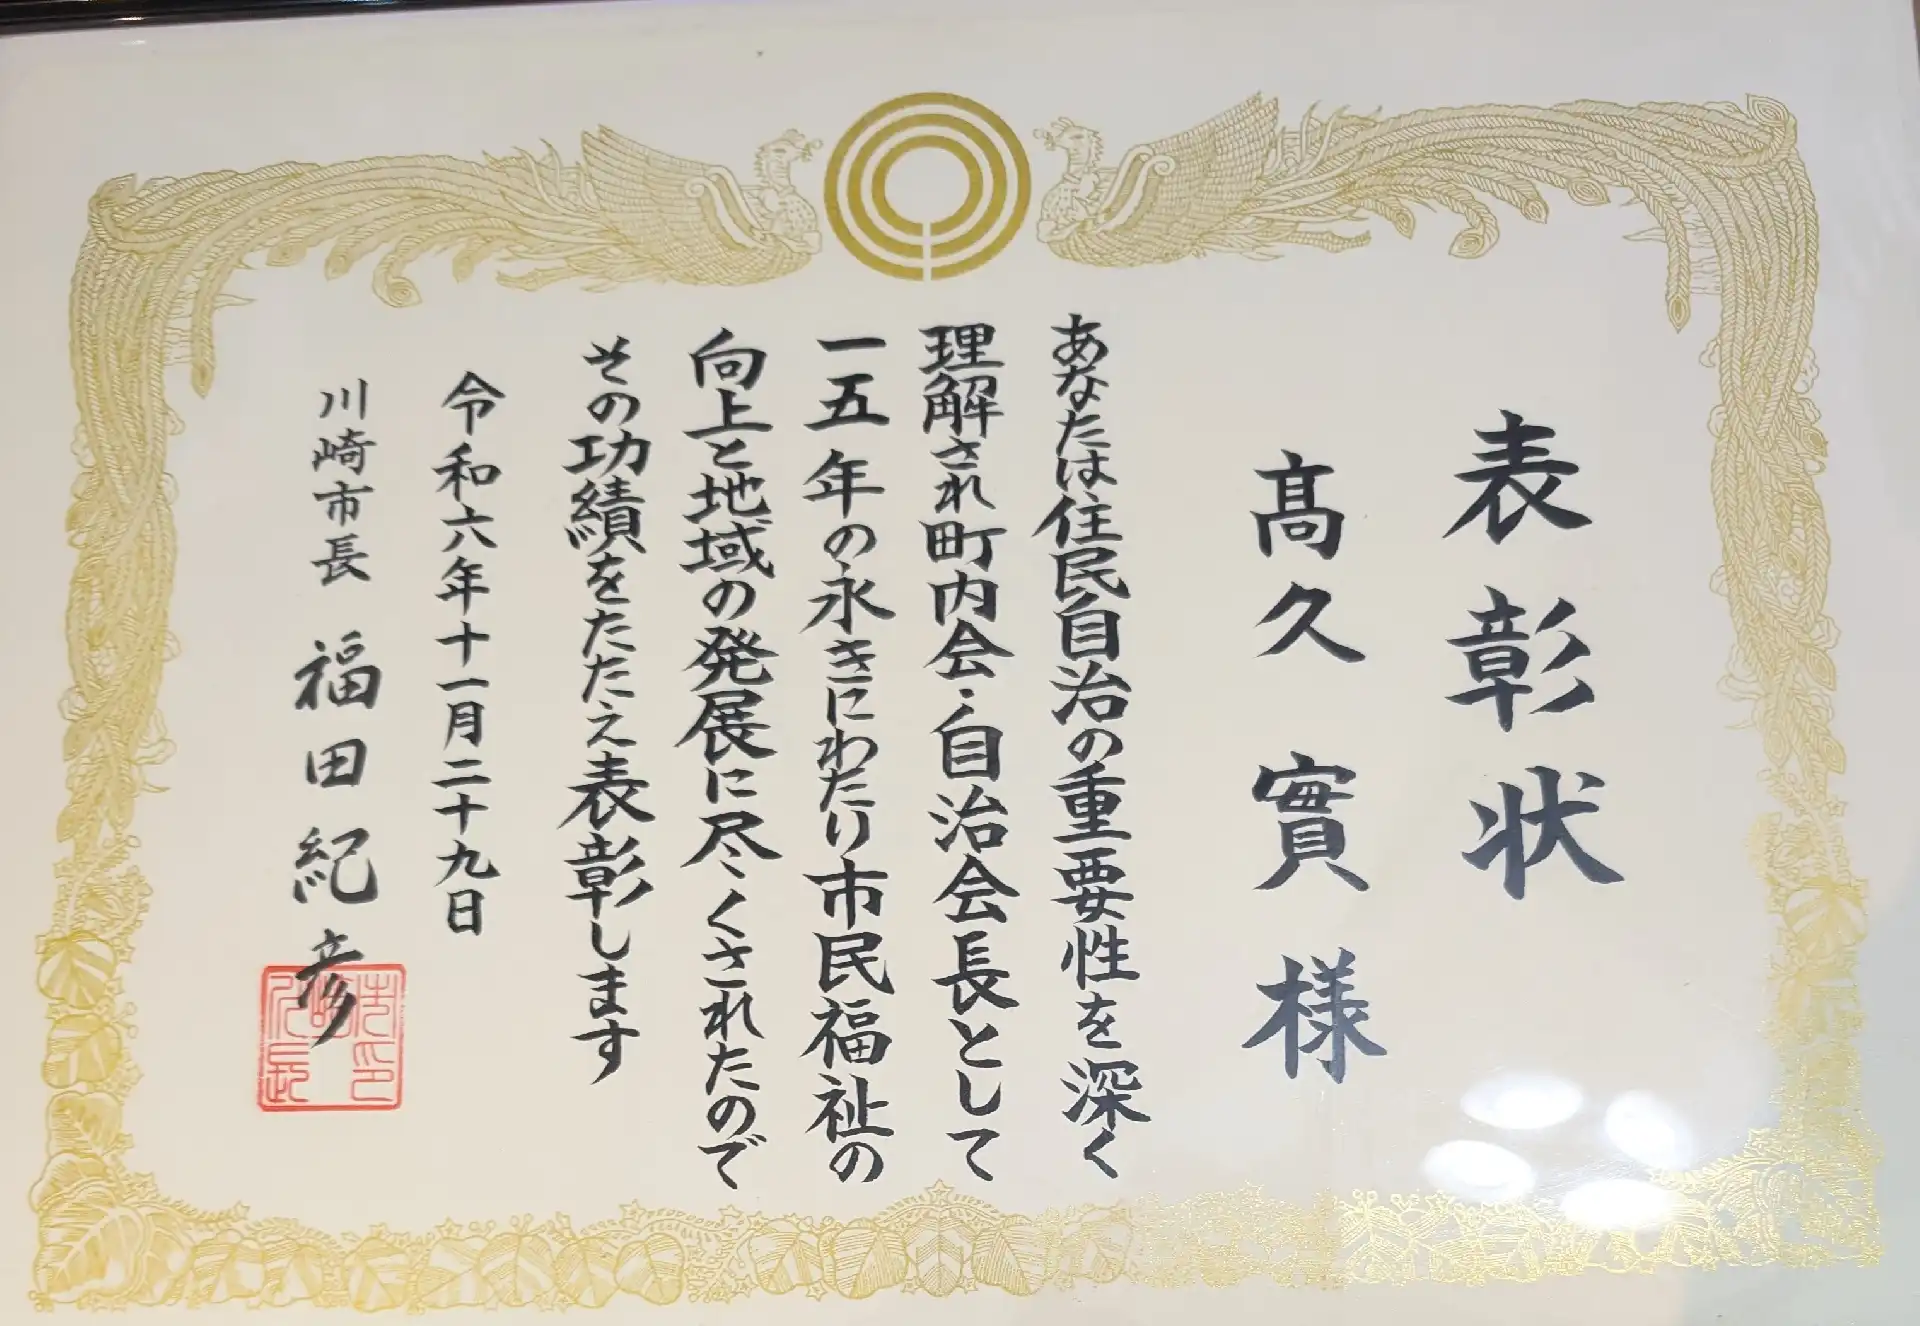 表彰状
髙久實様
あなたは住民自治の重要性を深く
理解され町内会・自治会長として
一五年の永きにわたり市民福祉の
向上と地域の発展に尽くされたので
その功績をたたえ表彰します
令和六年十一月二十九日
川崎市長 福田紀彦